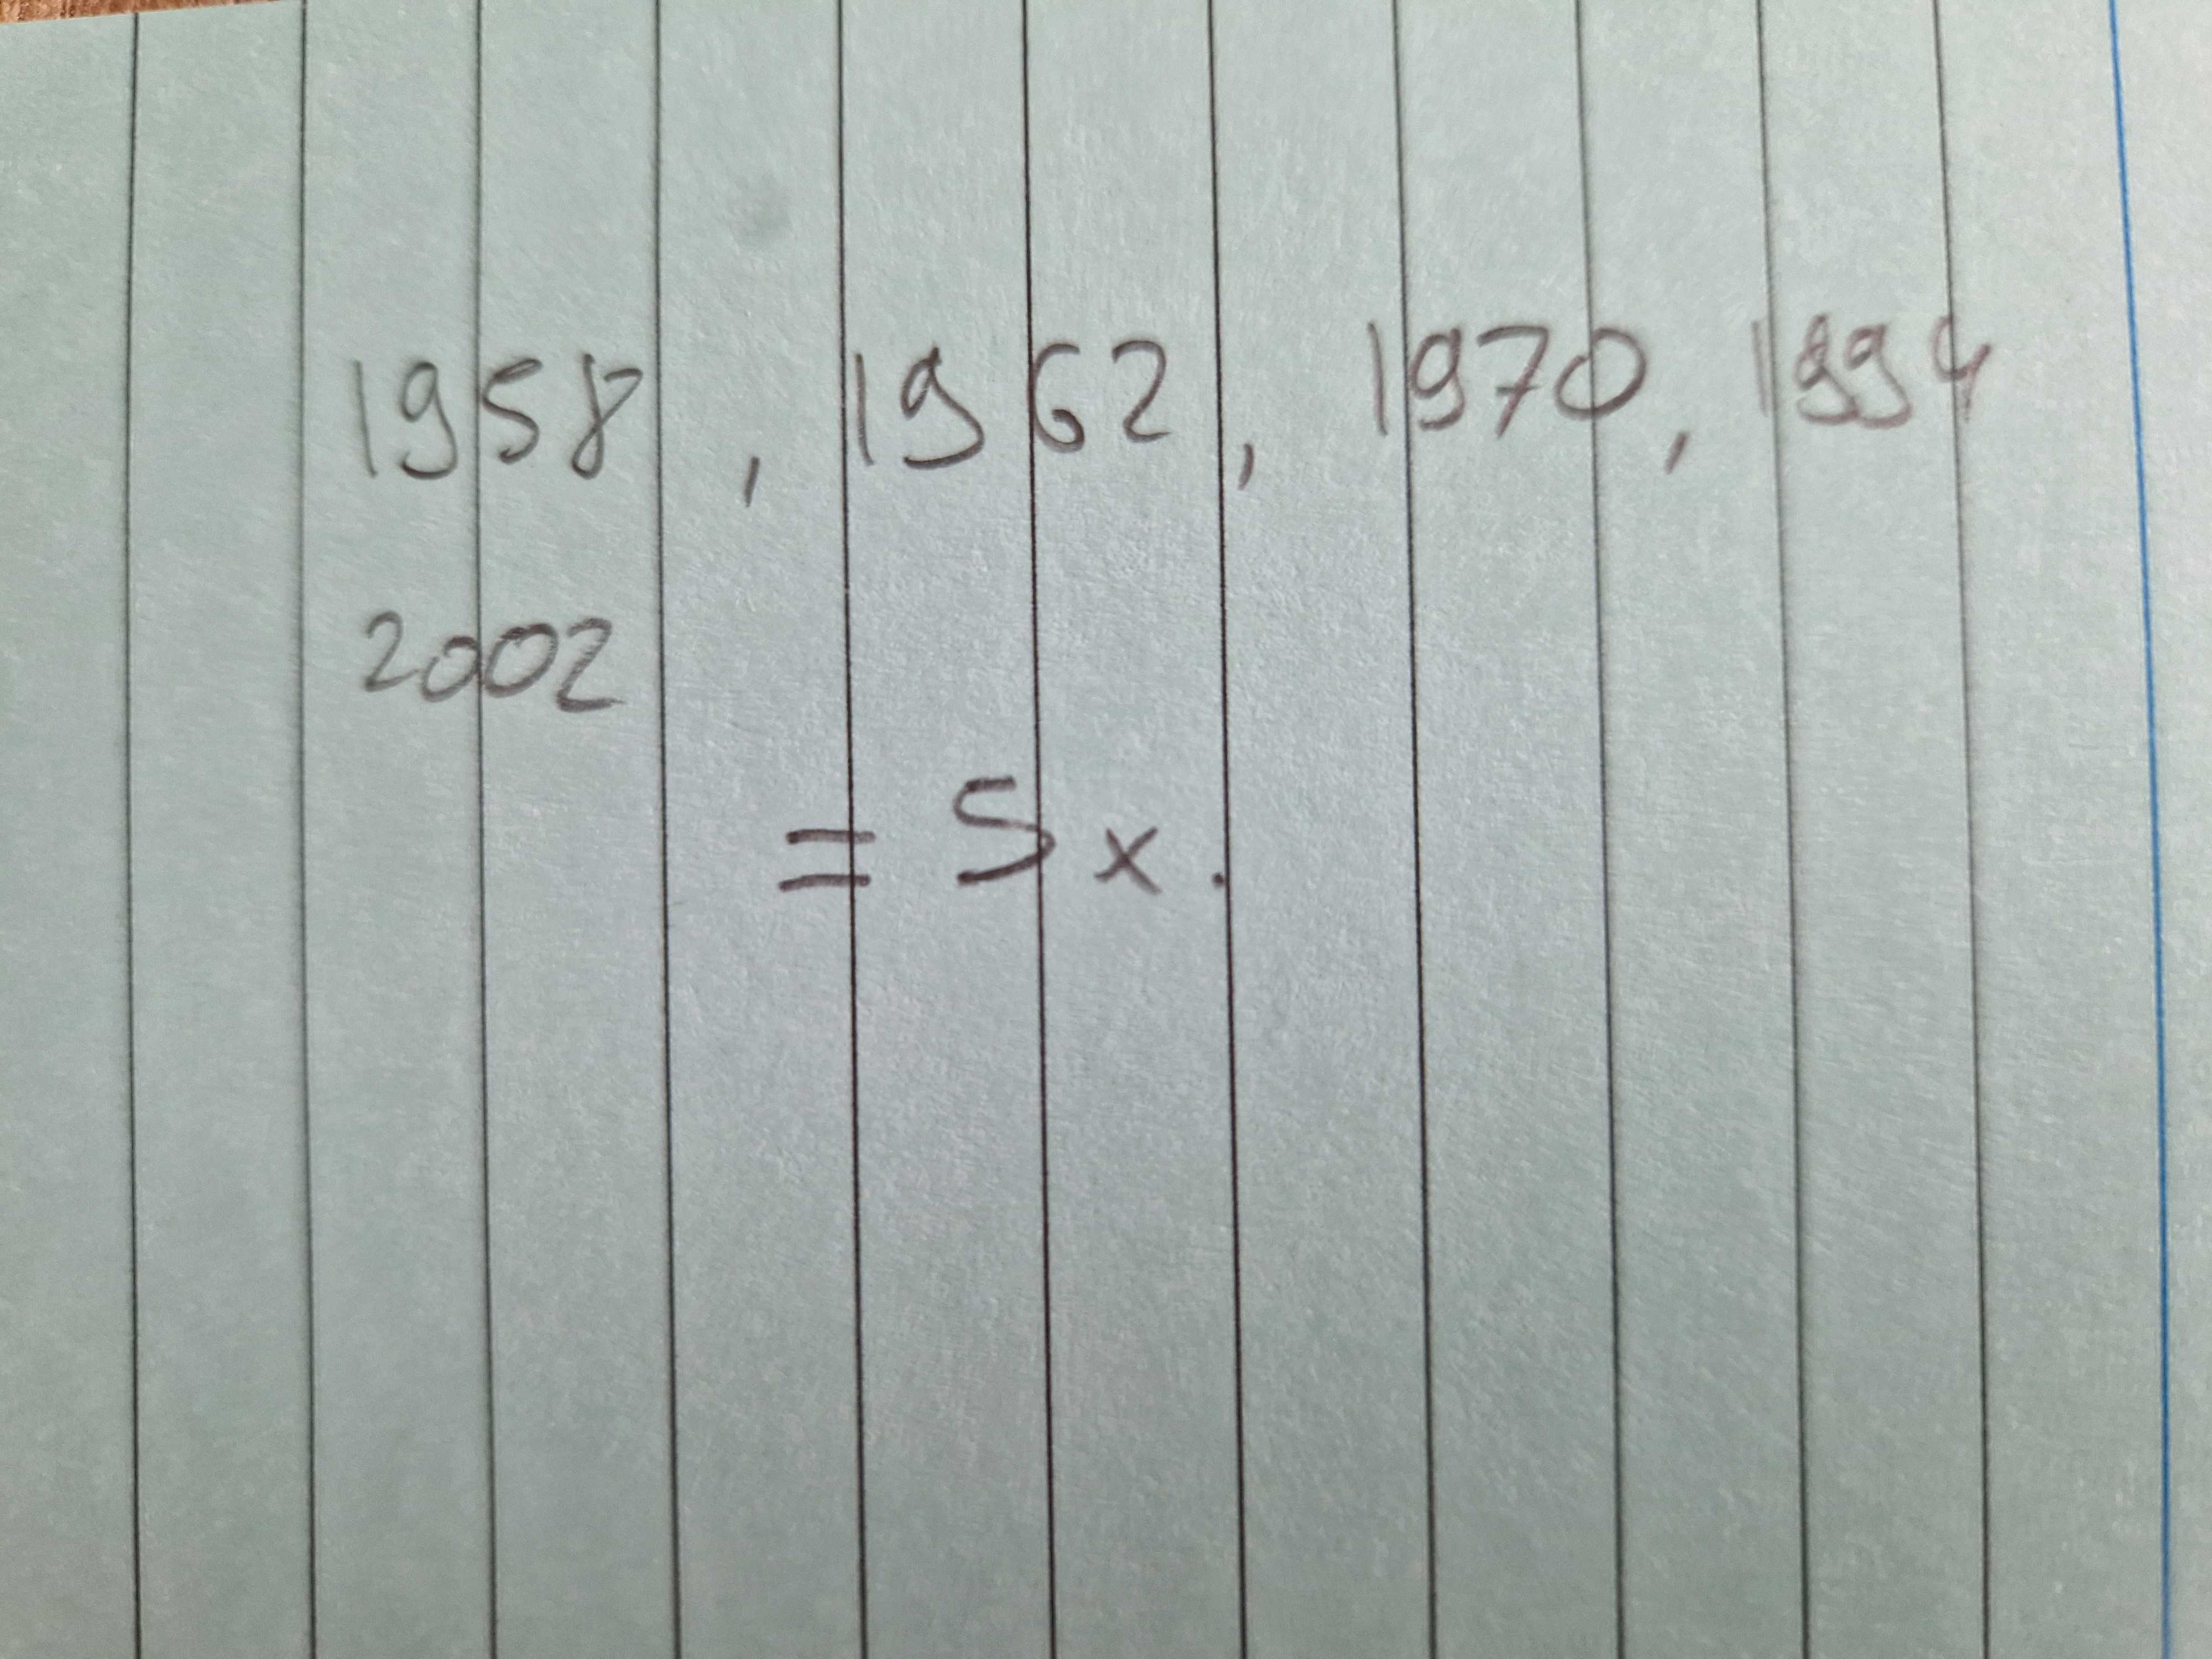 1958, 1962, 1970, 1994
2002
= 5x.